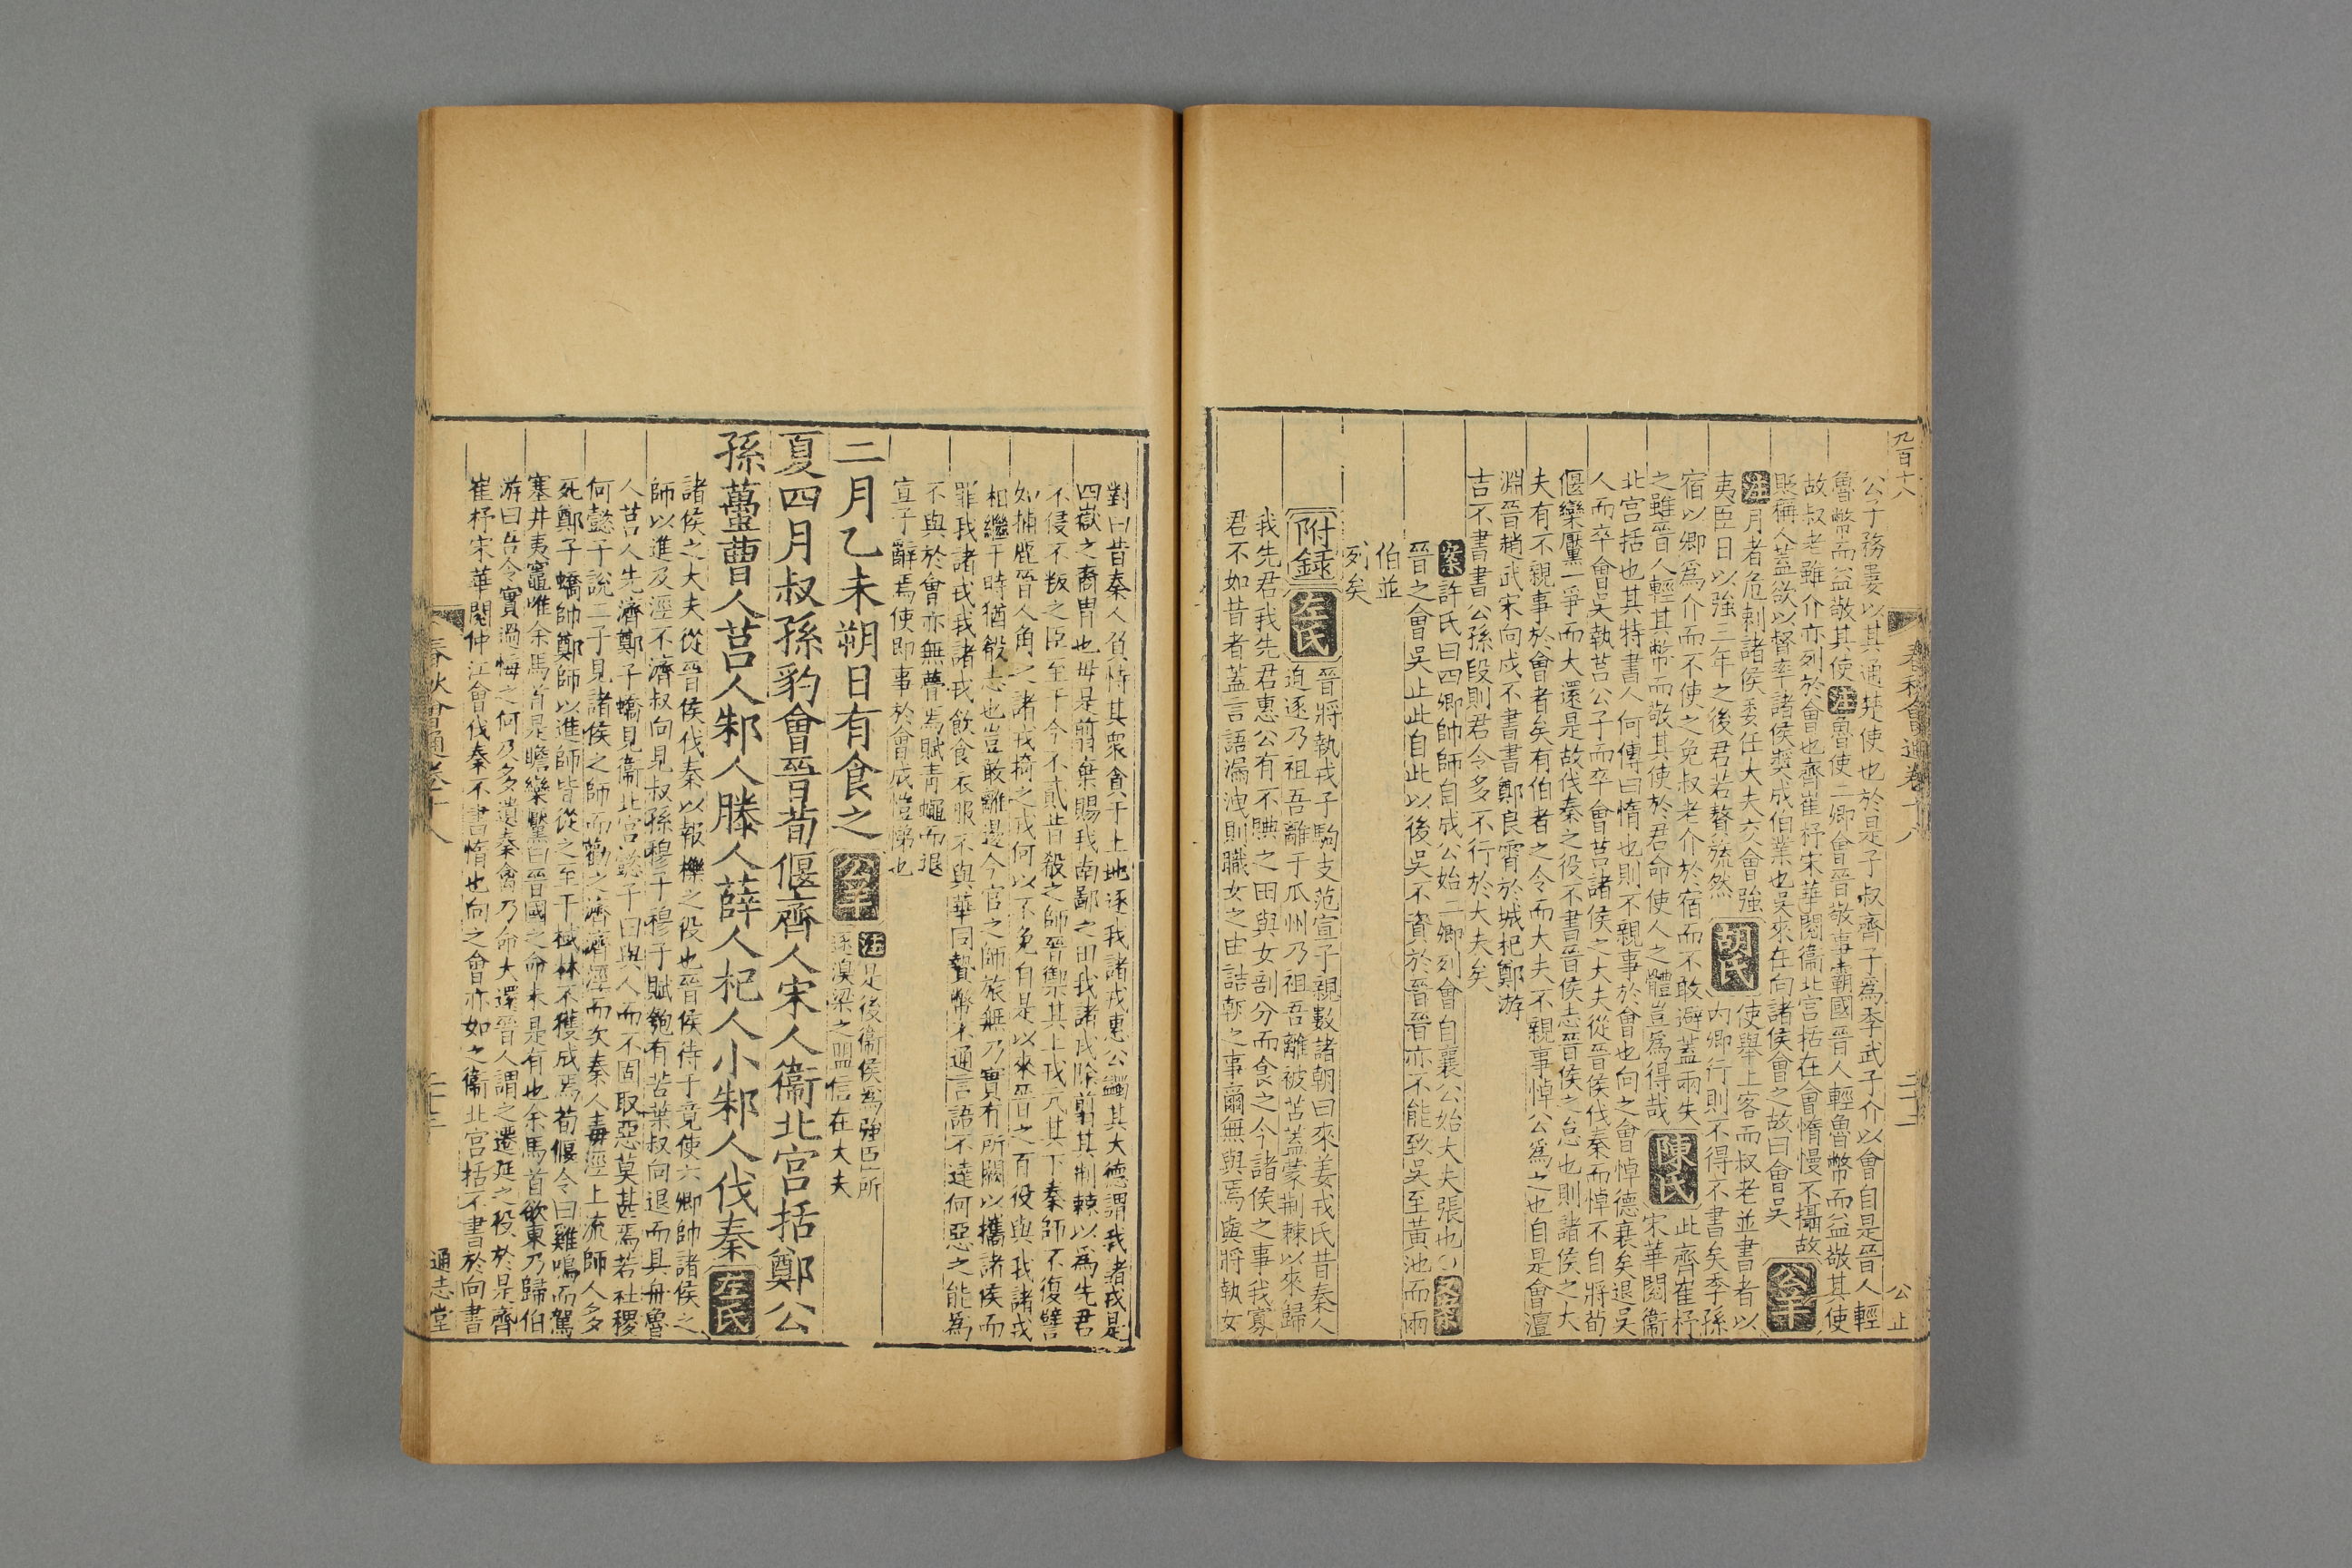 九百十八
春秋會通卷十八
二十二
公止
公子務婁以其通楚使也於是子叔齊子爲季武子介以會自是晉人輕
魯幣而益敬其使注魯使二卿會晉敬事霸國晉人輕魯幣而益敬其使
故叔老雖介亦列於會也齊崔杼宋華閱衞北宮括在會惰慢不攝故
貶稱人蓋欲以督率諸侯奬成伯業也吳來在向諸侯會之故曰會吳公羊
注月者危刺諸侯委任大夫交會強
夷臣日以強三年之後君若贅旒然胡氏使舉上客而叔老並書者以
內卿行則不得不書矣季孫
宿以卿爲介而不使之免叔老介於宿而不敢避蓋兩失
之雖晉人輕其幣而敬其使於君命使人之體豈爲得哉陳氏此齊崔杼
宋華閱衞
北宮括也其特書人何傳曰惰也則不親事於會也向之會悼德衰矣退吳
人而卒會吳執莒公子而卒會莒諸侯之大夫從晉侯伐秦而悼不自將荀
偃欒黶一爭而大還是故伐秦之役不書晉侯志晉侯之怠也則諸侯之大
夫有不親事於會者矣有伯者之令而大夫不親事悼公爲之也自是會澶
淵晉趙武宋向戌不書書鄭良霄於城杞鄭游
吉不書書公孫段則君令多不行於大夫矣
案許氏曰四卿帥師自成公始二卿列會自襄公始大夫張也
晉之會吳止此自此以後吳不資於晉晉亦不能致吳至黃池而兩
伯並
列矣
附録左氏晉將執戎子駒支范宣子親數諸朝曰來姜戎氏昔秦人
迫逐乃祖吾離于瓜州乃祖吾離被苫蓋蒙荆棘以來歸
我先君我先君惠公有不腆之田與女剖分而食之今諸侯之事我寡
君不如昔者蓋言語漏洩則職女之由詰朝之事爾無與焉與將執女
對曰昔秦人負恃其衆貪于土地逐我諸戎惠公蠲其大德謂我諸戎是
四嶽之裔胄也毋是翦棄賜我南鄙之田我諸戎除翦其荆棘以爲先君
不侵不叛之臣至于今不貳昔殽之師晉禦其上戎亢其下秦師不復譬
如捕鹿晉人角之諸戎掎之戎何以不免自是以來晉之百役與我諸戎
相繼于時猶殽志也豈敢離逷今官之師旅無乃實有所闕以攜諸侯而
罪我諸戎我諸戎飲食衣服不與華同贄幣不通言語不達何惡之能爲
不與於會亦無瞢焉賦青蠅而退
宣子辭焉使即事於會成愷悌也
二月乙未朔日有食之公羊注是後衞侯爲強臣所
逐溴梁之盟信在大夫
夏四月叔孫豹會晉荀偃齊人宋人衞北宮括鄭公
孫蠆曹人莒人邾人滕人薛人杞人小邾人伐秦左氏
諸侯之大夫從晉侯伐秦以報櫟之役也晉侯待于竟使六卿帥諸侯之
師以進及涇不濟叔向見叔孫穆子穆子賦匏有苦葉叔向退而具舟魯
人莒人先濟鄭子蟜見衞北宮懿子曰與人而不固取惡莫甚焉若社稷
何懿子說二子見諸侯之師而勸之濟濟涇而次秦人毒涇上流師人多
死鄭子蟜帥鄭師以進師皆從之至于棫林不獲成焉荀偃令曰雞鳴而駕
塞井夷竈唯余馬首是瞻欒黶曰晉國之命未是有也余馬首欲東乃歸伯
游曰吾令實過悔之何及多遺秦禽乃命大還晉人謂之遷延之役於是齊
崔杼宋華閱仲江會伐秦不書惰也向之會亦如之衞北宮括不書於向書
春秋會通卷十八
二十三
通志堂